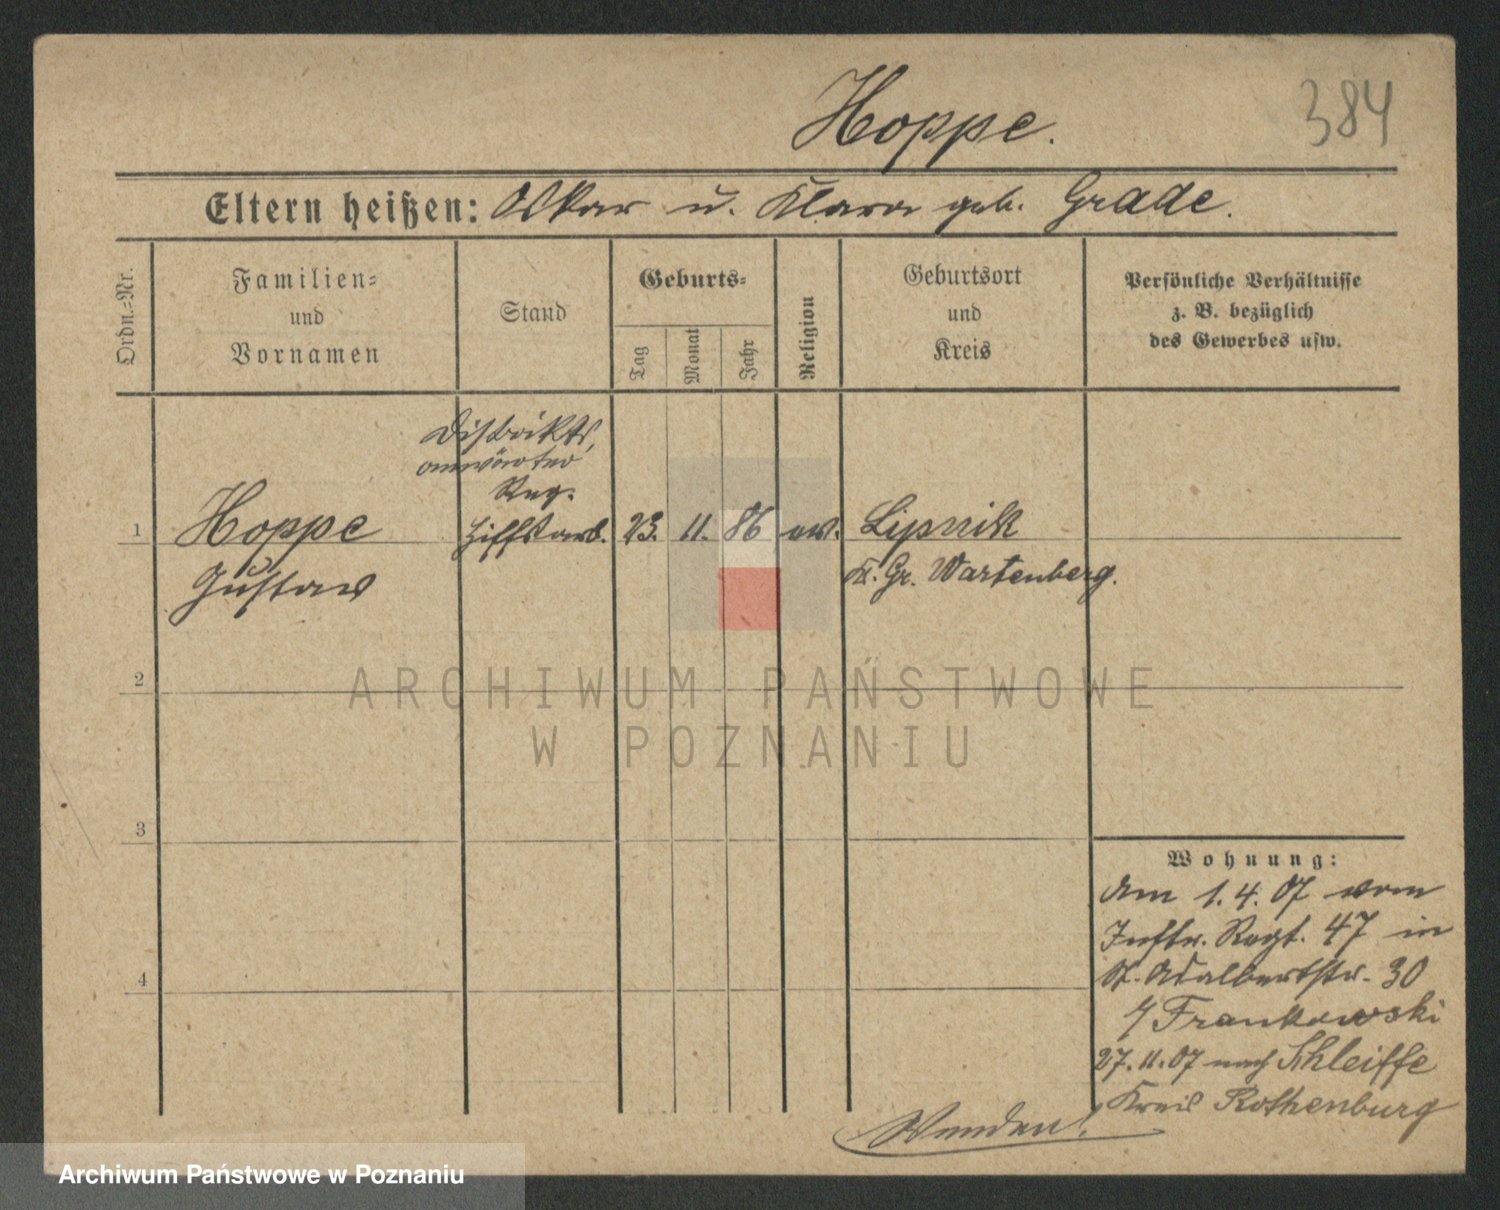 Hoppe.
384
Eltern heißen: Oskar u. Klara geb. Grade.
Ordn.=Nr.
Familien=
und
Vornamen
Stand
Geburts=
Tag
Monat
Jahr
Religion
Geburtsort
und
Kreis
Persönliche Verhältnisse
z. B. bezüglich
des Gewerbes usw.
Distrikts
anwärter
Reg.
1 Hoppe 23. 11. 86 ev. Lipnik
Gustav
Kr. Gr. Wartenberg.
2
ARCHIWUM PAŃSTWOWE
W POZNANIU
3
Wohnung:
Am 1.4.07 vom
Inftr. Regt. 47 in
St. Adalbertstr. 30
b/ Frankowski
27.11.07 nach Schleiffe
Kreis Rothenburg
4
Wenden!
Archiwum Państwowe w Poznaniu